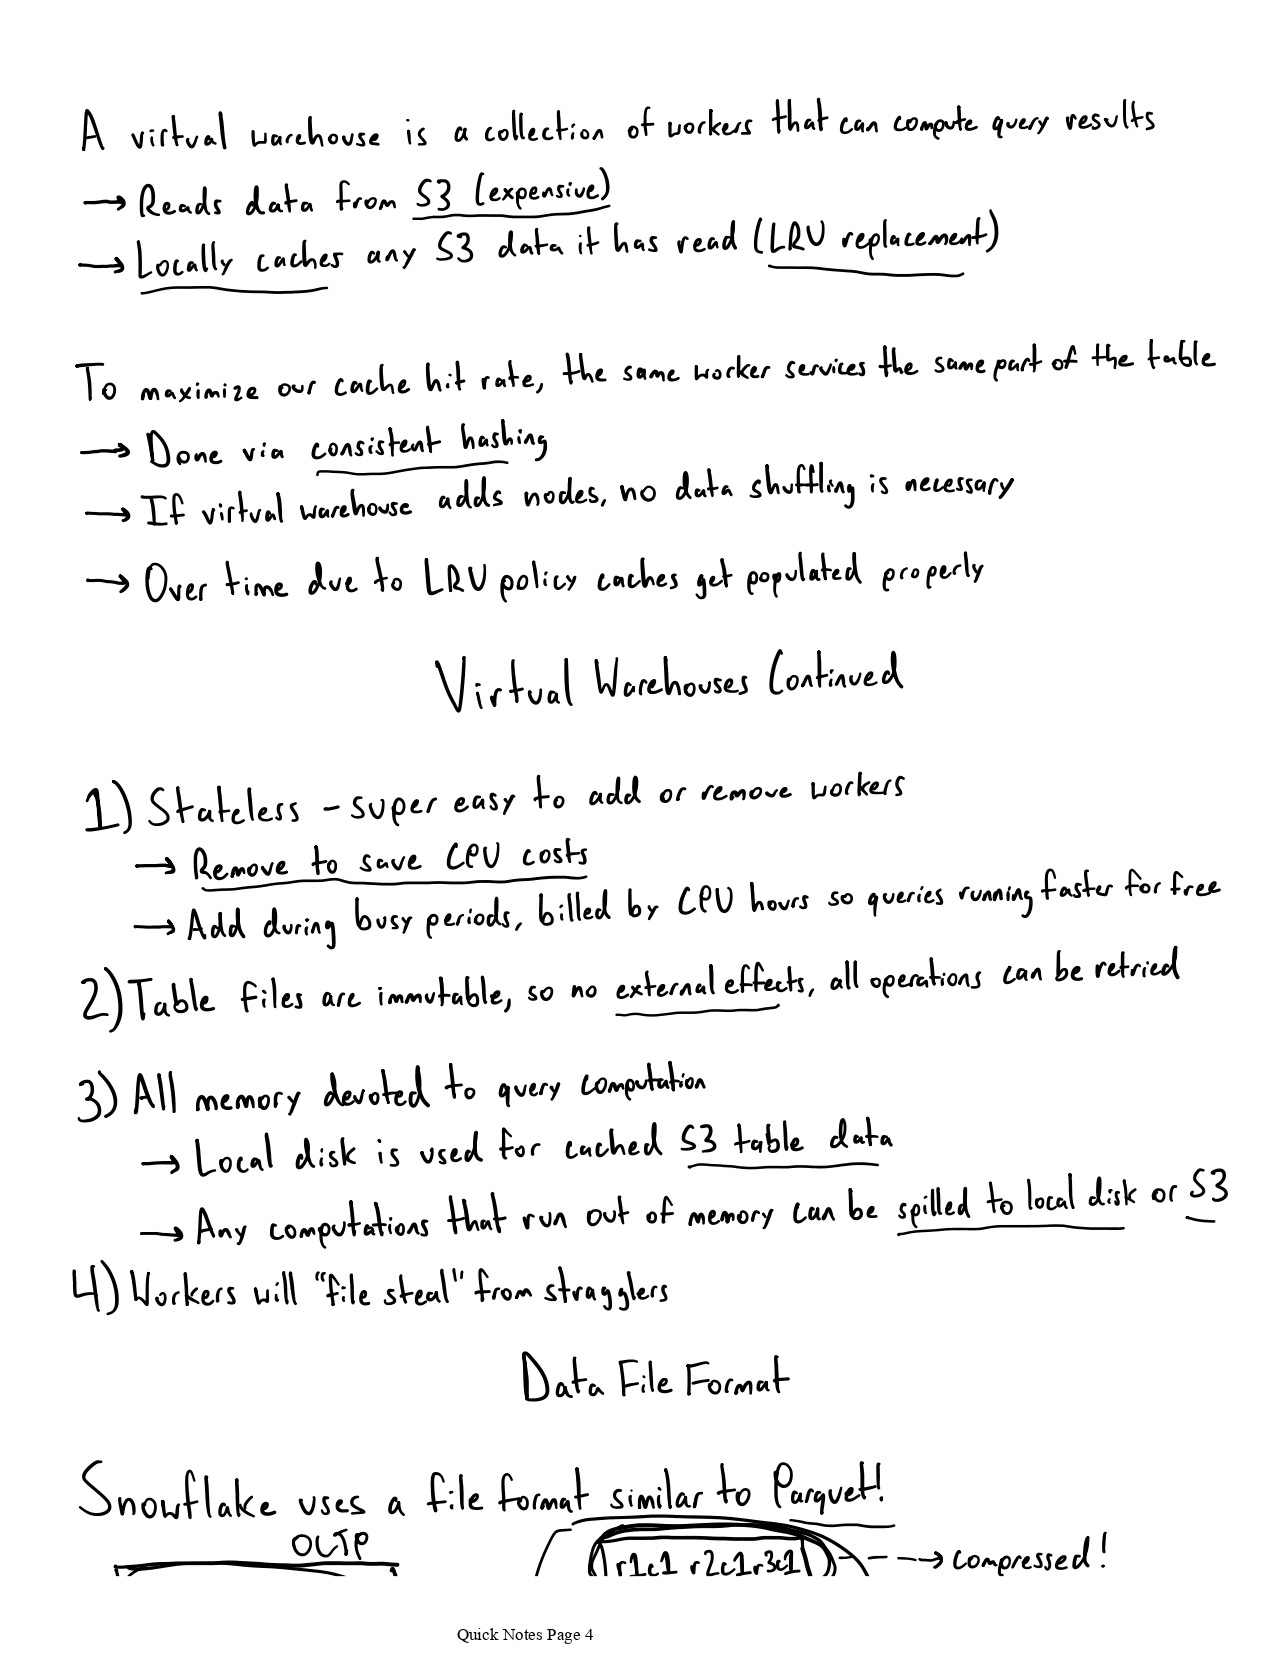 A virtual warehouse is a collection of workers that can compute query results
→ Reads data from S3 (expensive)
→ Locally caches any S3 data it has read (LRU replacement)
To maximize our cache hit rate, the same worker services the same part of the table
→ Done via consistent hashing
→ If virtual warehouse adds nodes, no data shuffling is necessary
→ Over time due to LRU policy caches get populated properly
Virtual Warehouses Continued
1) Stateless - super easy to add or remove workers
→ Remove to save CPU costs
→ Add during busy periods, billed by CPU hours so queries running faster for free
2) Table files are immutable, so no external effects, all operations can be retried
3) All memory devoted to query computation
→ Local disk is used for cached S3 table data
→ Any computations that run out of memory can be spilled to local disk or S3
4) Workers will "file steal" from stragglers
Data File Format
Snowflake uses a file format similar to Parquet!
OLTP
r1c1 r2c1 r3c1 --→ compressed!
Quick Notes Page 4